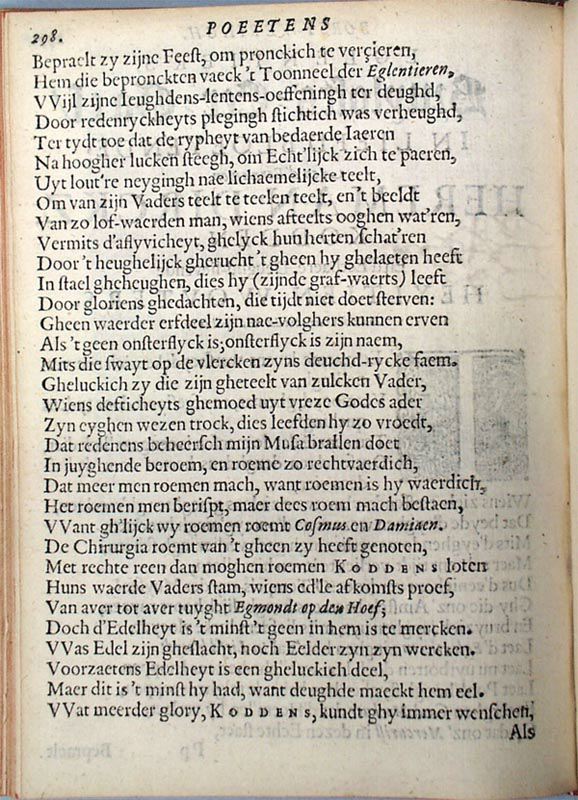 298.
POEETENS
Bepraelt zy zijne Feest, om pronckich te verçieren,
Hem die bepronckten vaeck 't Toonneel der Eglentieren,
VVijl zijne Ieughdens-lentens-oeffeningh ter deughd,
Door redenryckheyts plegingh stichtich was verheughd,
Ter tydt toe dat de rypheyt van bedaerde Iaeren
Na hoogher lucken steegh, om Echt'lijck zich te paeren,
Uyt lout're neygingh nae lichaemelijcke teelt,
Om van zijn Vaders teelt te teelen teelt, en 't beeldt
Van zo lof-waerden man, wiens afteelts ooghen wat'ren,
Vermits d'aflyvicheyt, ghelyck hun herten schat'ren
Door 't heughelijck gherucht 't gheen hy ghelaeten heeft
In stael gheheughen, dies hy (zijnde graf-waerts) leeft
Door gloriens ghedachten, die tijdt niet doet sterven:
Gheen waerder erfdeel zijn nae-volghers kunnen erven
Als 't geen onsterflyck is; onsterflyck is zijn naem,
Mits die swayt op de vlercken zyns deuchd-rycke faem.
Gheluckich zy die zijn gheteelt van zulcken Vader,
Wiens defticheyts ghemoed uyt vreze Godes ader
Zyn eyghen wezen trock, dies leefden hy zo vroedt,
Dat redenens beheersch mijn Musa brallen doet
In juyghende beroem, en roeme zo rechtvaerdich,
Dat meer men roemen mach, want roemen is hy waerdich,
Het roemen men berispt, maer dees roem mach bestaen,
VVant gh'lijck wy roemen roemt Cosmus en Damiaen.
De Chirurgia roemt van 't gheen zy heeft genoten,
Met rechte reen dan moghen roemen KODDENS loten
Huns waerde Vaders stam, wiens ed'le afkomsts proef,
Van aver tot aver tuyght Egmondt op den Hoef;
Doch d'Edelheyt is 't minst 't geen in hem is te mercken.
VVas Edel zijn gheslacht, noch Eelder zyn zyn wercken.
Voorzaetens Edelheyt is een gheluckich deel,
Maer dit is 't minst hy had, want deughde maeckt hem eel.
VVat meerder glory, KODDENS, kundt ghy immer wenschen,
Als